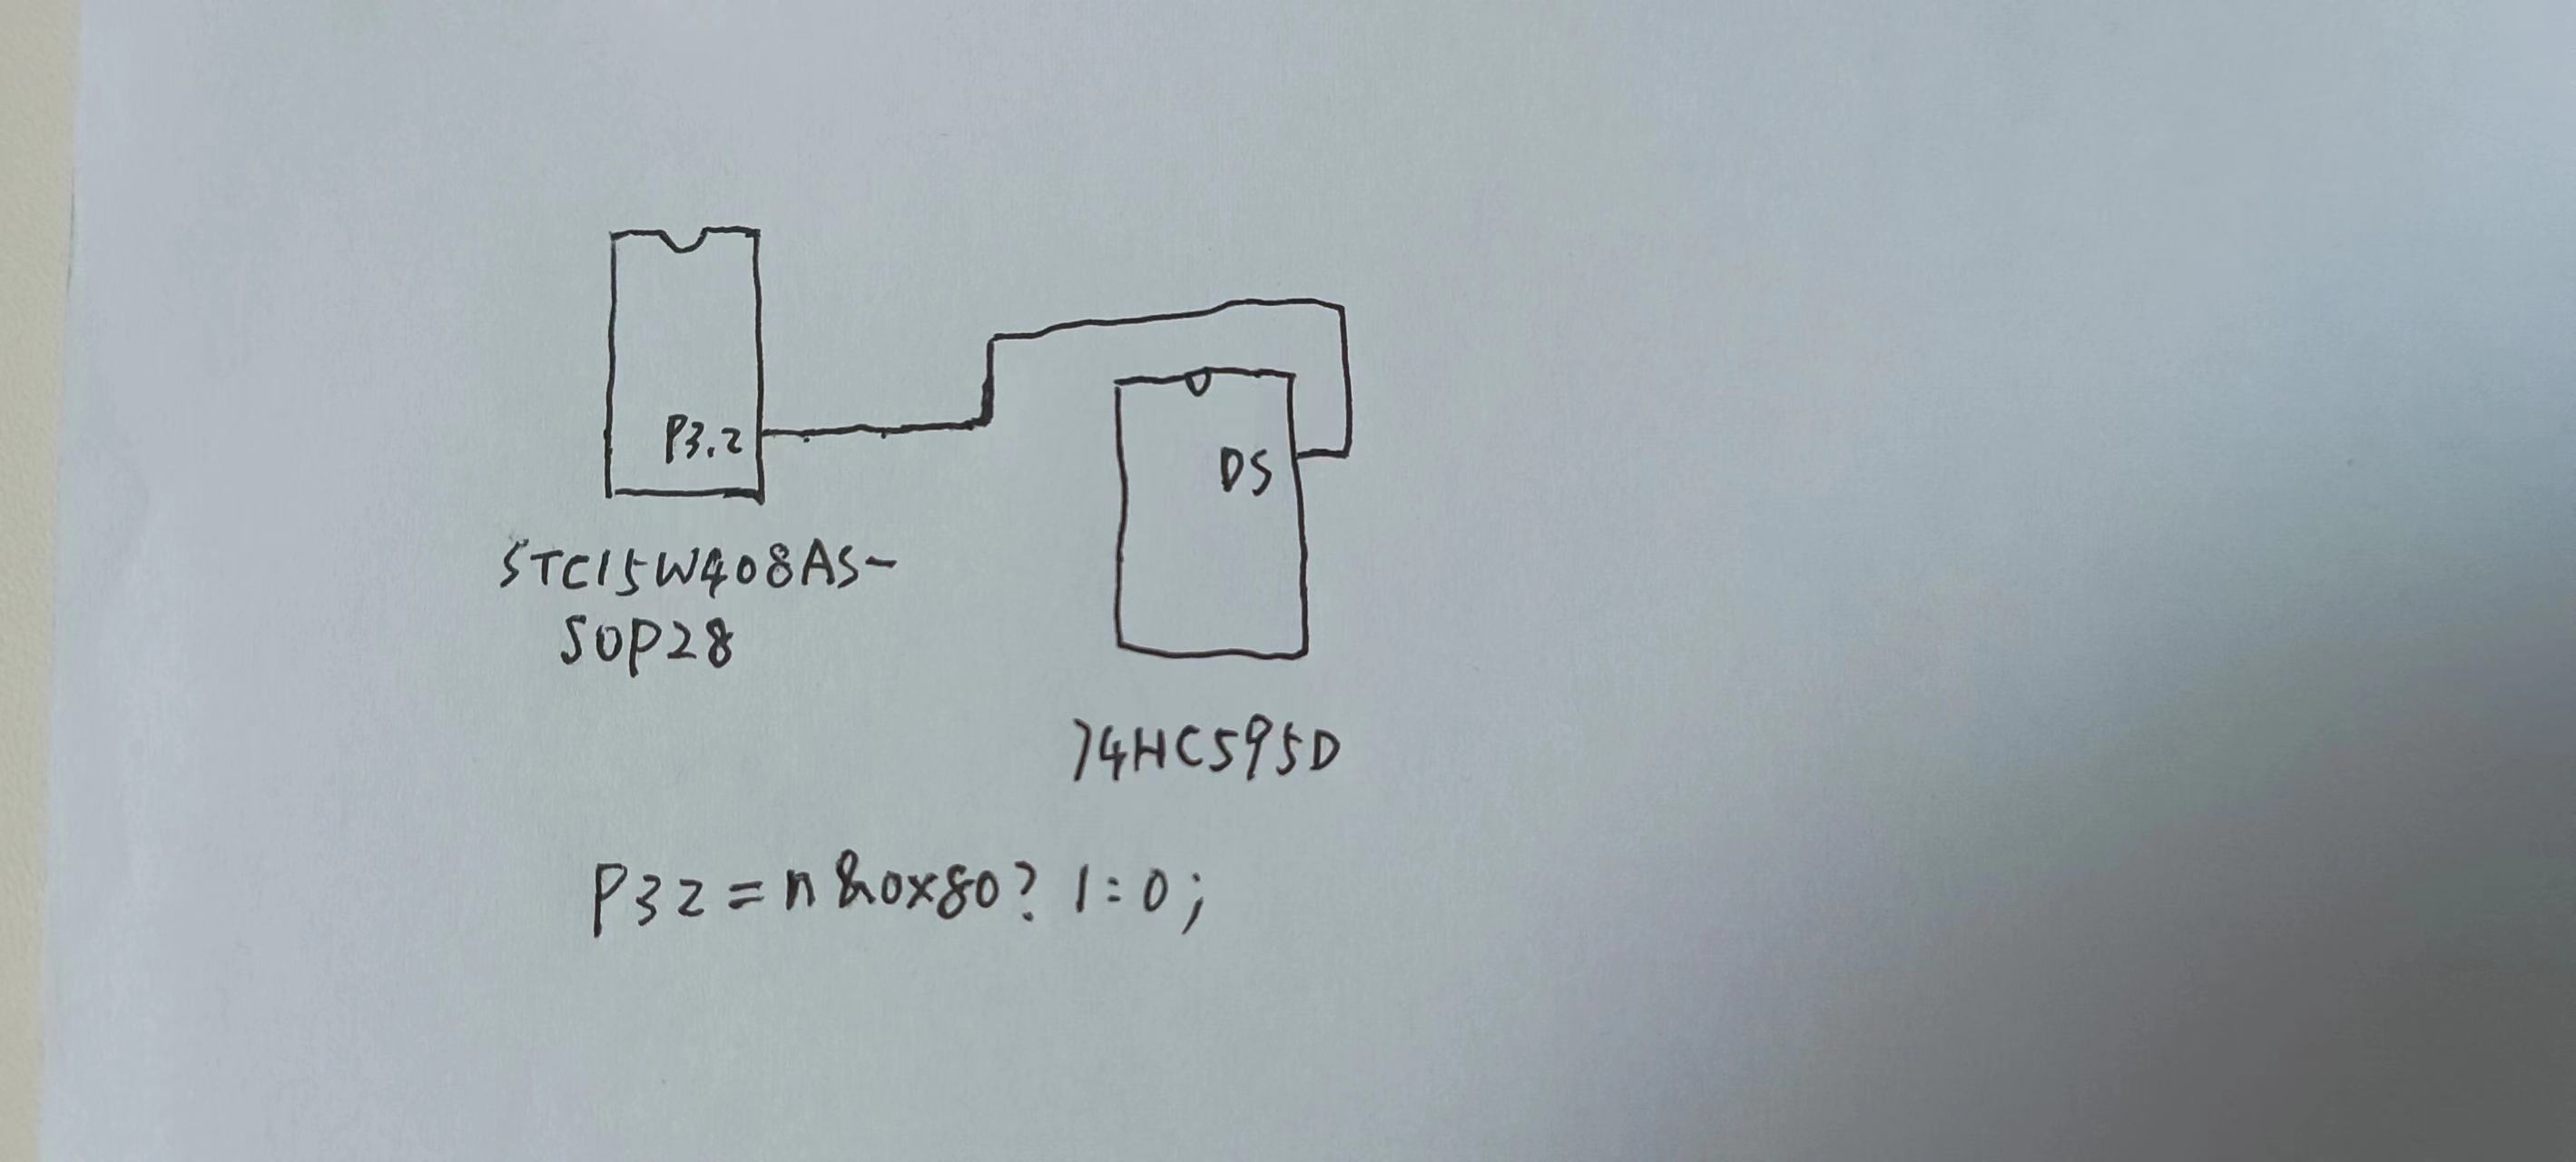 P3.2
DS
STC15W408AS-
SOP28
74HC595D
P32=n&0x80?1:0;